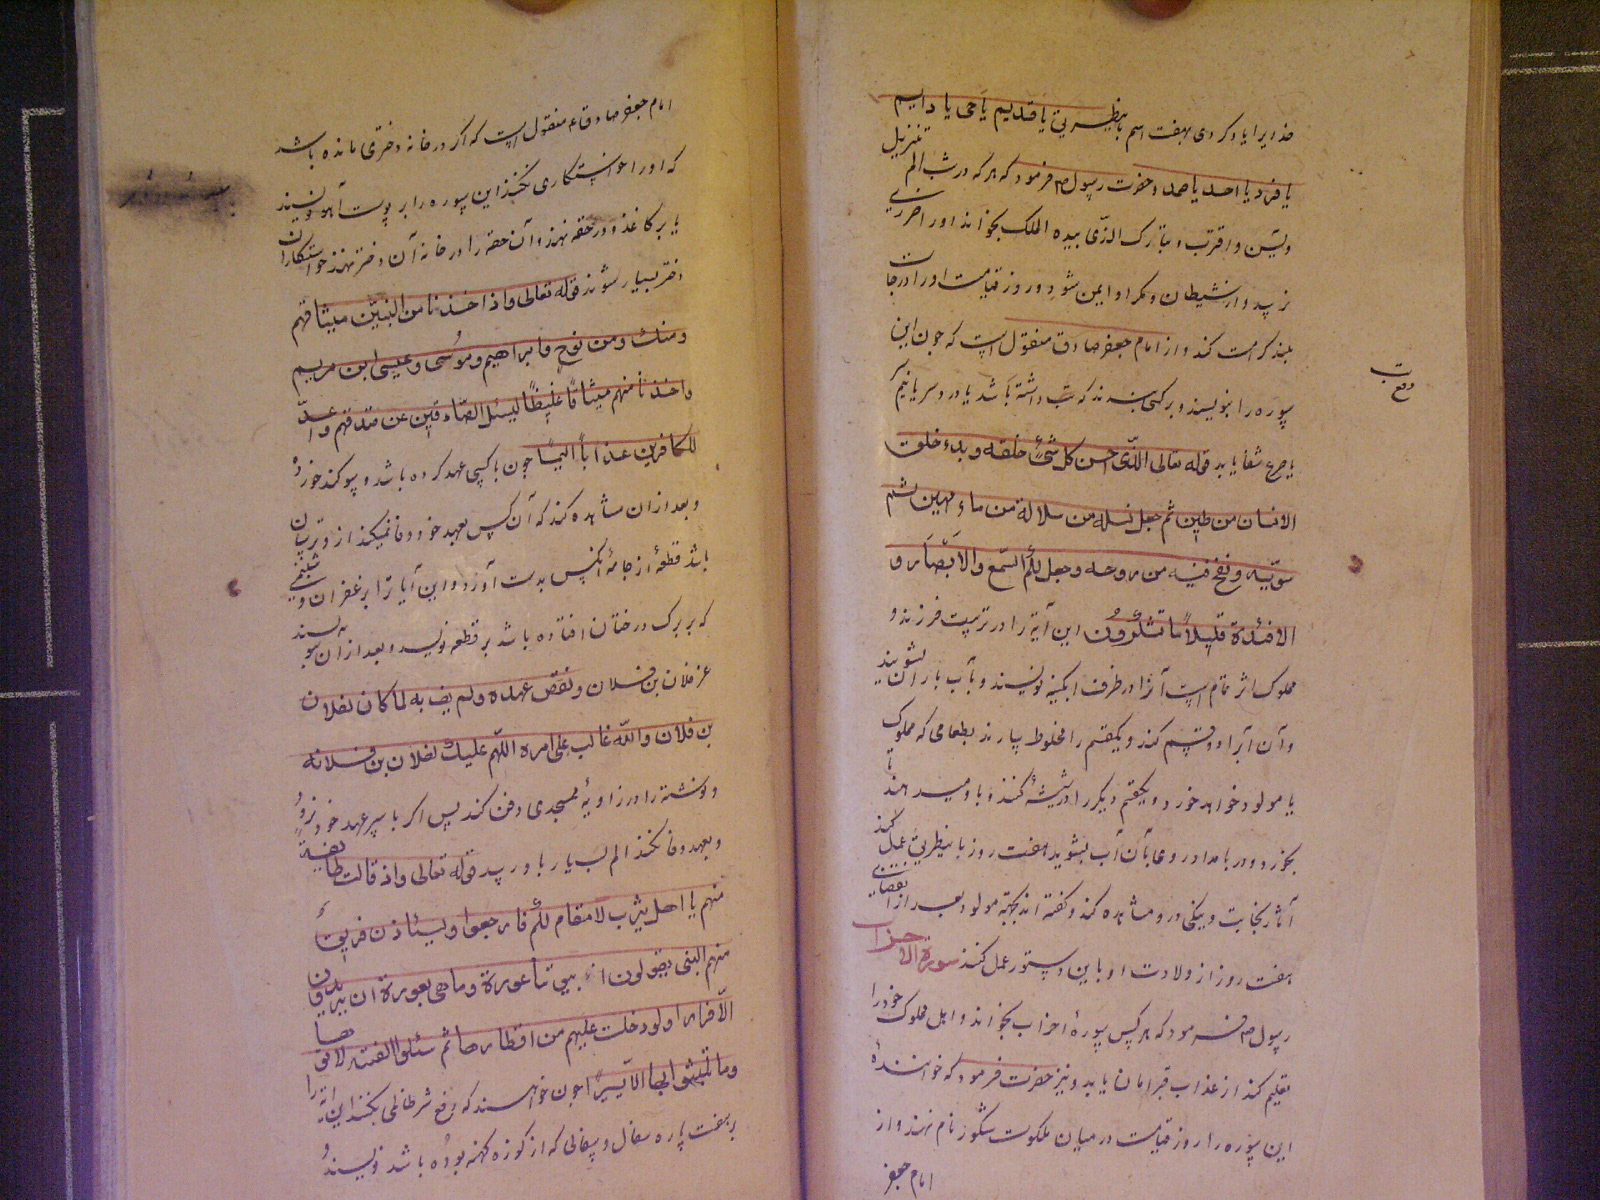 خدایرا یاد کردی بهفت اسم باینطریق یا قدیم یا حی یا دایم
یا فرد یا احد یا صمد و حضرت رسول ص فرمود که هر که در شب الم تنزیل
ویس و اقترب و تبارک الذی بیده الملک بخواند اورا حرزی
رسد و از شیطان و مکر او ایمن شود و روز قیامت اورا درجات
بلند کرامت کند و از امام جعفر صادق منقول است که چون این
سوره را بنویسند و بر کسی بندند که تب داشته باشد یا درد سر یا نیم سر
یا صرع شفا یابد قوله تعالی الذی احسن کل شیء خلقه و بدء خلق
الانسان من طین ثم جعل نسله من سلالة من ماء مهین ثم
سویه و نفخ فیه من روحه و جعل لکم السمع والابصار و
الافئدة قلیلا ما تشکرون این آیة را در تربیت فرزند و
مملوک اثر تمام است آنرا در ظرف آبگینه نویسند و بآب باران بشویند
و آن آبرا دو قسم کنند و یکقسم را مخلوط سازند بطعامی که مملوک
یا مولود خواهد خورد و یکقسم دیگر را در شیشه کنند و با و میدهند تا
بخورد و در بامداد روی بآن آب بشوید هفت روز باینطریق عمل کند
آثار نجابت و نیکی درو مشاهده کند و گفته اند بجهة مولود بعد از انقضای
هفت روز از ولادت او باین دستور عمل کنند سورة الاحزاب
رسول ص فرمود که هر کس سورهٔ احزاب بخواند و اهل مملوک خود را
تعلیم کند از عذاب قبر امان یابد و نیز حضرت فرمود که خوانندهٔ
این سوره را روز قیامت در میان ملکوت شکور نام نهند و از
امام جعفر
امام جعفر صادق ع منقول است که اگر در خانه دختری مانده باشد
که اورا خواستکاری نکنند این سوره را بر پوست آهو نویسند
یا بر کاغذ و در حقه نهند و آن حقه را در خانه آن دختر نهند خواستکاران
دختر بسیار شوند قوله تعالی و اذ اخذنا من النبیین میثاقهم
و منک و من نوح و ابراهیم و موسی و عیسی ابن مریم
و اخذنا منهم میثاقا غلیظا لیسئل الصادقین عن صدقهم و اعد
للکافرین عذابا الیما چون با کسی عهد کرده باشد و سوکند خورده
و بعد از ان مشاهده کند که آن کس بعهد خود وفا نمیکند ازو ترسان
باشد قطعهٔ از جامهٔ آنکس بدست آورد و این آیاترا بزعفران و شبنمی
که بر برک درختان افتاده باشد بر قطعه نویسد و بعد از آن بنویسند
عز فلان بن فلان و نقض عهده و لم یف به لما کان لفلان
بن فلان والله غالب علی امره اللهم علیک لفلان بن فلانه
و نوشته را در زاویهٔ مسجدی دفن کند پس اکر باسر عهد خود نرود
و بعهد وفا نکند الم بسیار باو رسد قوله تعالی و اذ قالت طایفة
منهم یا اهل یثرب لا مقام لکم فارجعوا و یستاذن فریق
منهم النبی یقولون ان بیوتنا عورة و ما هی بعورة ان یریدون
الا فرارا و لو دخلت علیهم من اقطارها ثم سئلوا الفتنة لاتوها
و ما تلبثوا بها الا یسیرا چون خواهند که دفع شر ظالمی بکنند این آیه را
بر هفت پاره سفال و سفالی که از کوزه کهنه بوده باشد نویسند و